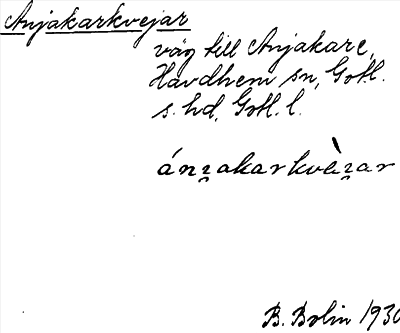 Anjakarkvejar
väg till Anjakare,
Havdhem sn, Gotl.
s. hd, Gotl. l.
ánȥakarkvèȥar
B. Bolin 1930